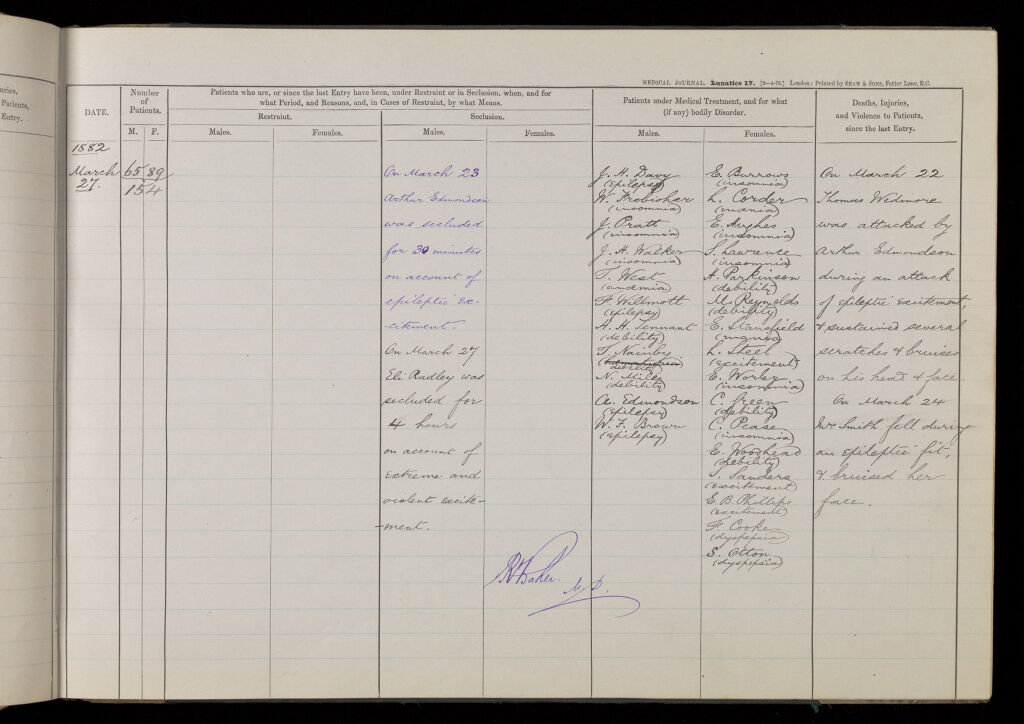 uries,
Patients,
Entry.
MEDICAL JOURNAL. Lunatics 17. [2—4-79.] London: Printed by SHAW & SONS, Fetter Lane, E.C.
DATE.
Number
of
Patients.
M. F.
Patients who are, or since the last Entry have been, under Restraint or in Seclusion, when, and for
what Period, and Reasons, and, in Cases of Restraint, by what Means.
Restraint.
Seclusion.
Males. Females. Males. Females.
Patients under Medical Treatment, and for what
(if any) bodily Disorder.
Males. Females.
Deaths, Injuries,
and Violence to Patients,
since the last Entry.
1882
March
27.
65 89
154
On March 23
Arthur Edmondson
was secluded
for 30 minutes
on account of
epileptic ex-
citement.
On March 27
Eli Radley was
secluded for
4 hours
on account of
extreme and
violent excite-
-ment.
J. H. Davy
(epilepsy)
W. Frobisher
(insomnia)
J. Pratt
(insomnia)
J. H. Walker
(insomnia)
T. West
(anæmia)
F. Willmott
(epilepsy)
H. H. Tennant
(debility)
T. Nainby
debility)
N. Miles
(debility)
A. Edmondson
(epilepsy)
W. F. Brown
(epilepsy)
E. Burrows
(insomnia)
L. Corder
(mania)
E. Hughes
(insomnia)
S. Lawrence
(insomnia)
A. Parkinson
(debility)
M. Reynolds
(debility)
E. Stansfield
(mania)
L. Steel
(excitement)
E. Worley
(insomnia)
C. Green
(debility)
C. Pease
(insomnia)
E. Woodhead
(debility)
S. Sanders
(excitement)
E. B. Phillips
(excitement)
F. Cooke
(dyspepsia)
S. Otton
(dyspepsia)
On March 22
Thomas Wedmore
was attacked by
Arthur Edmondson
during an attack
of epileptic excitement,
& sustained several
scratches & bruises
on his head & face.
On March 24
Mrs Smith fell during
an epileptic fit,
& bruised her
face.
R Baker. M.D.